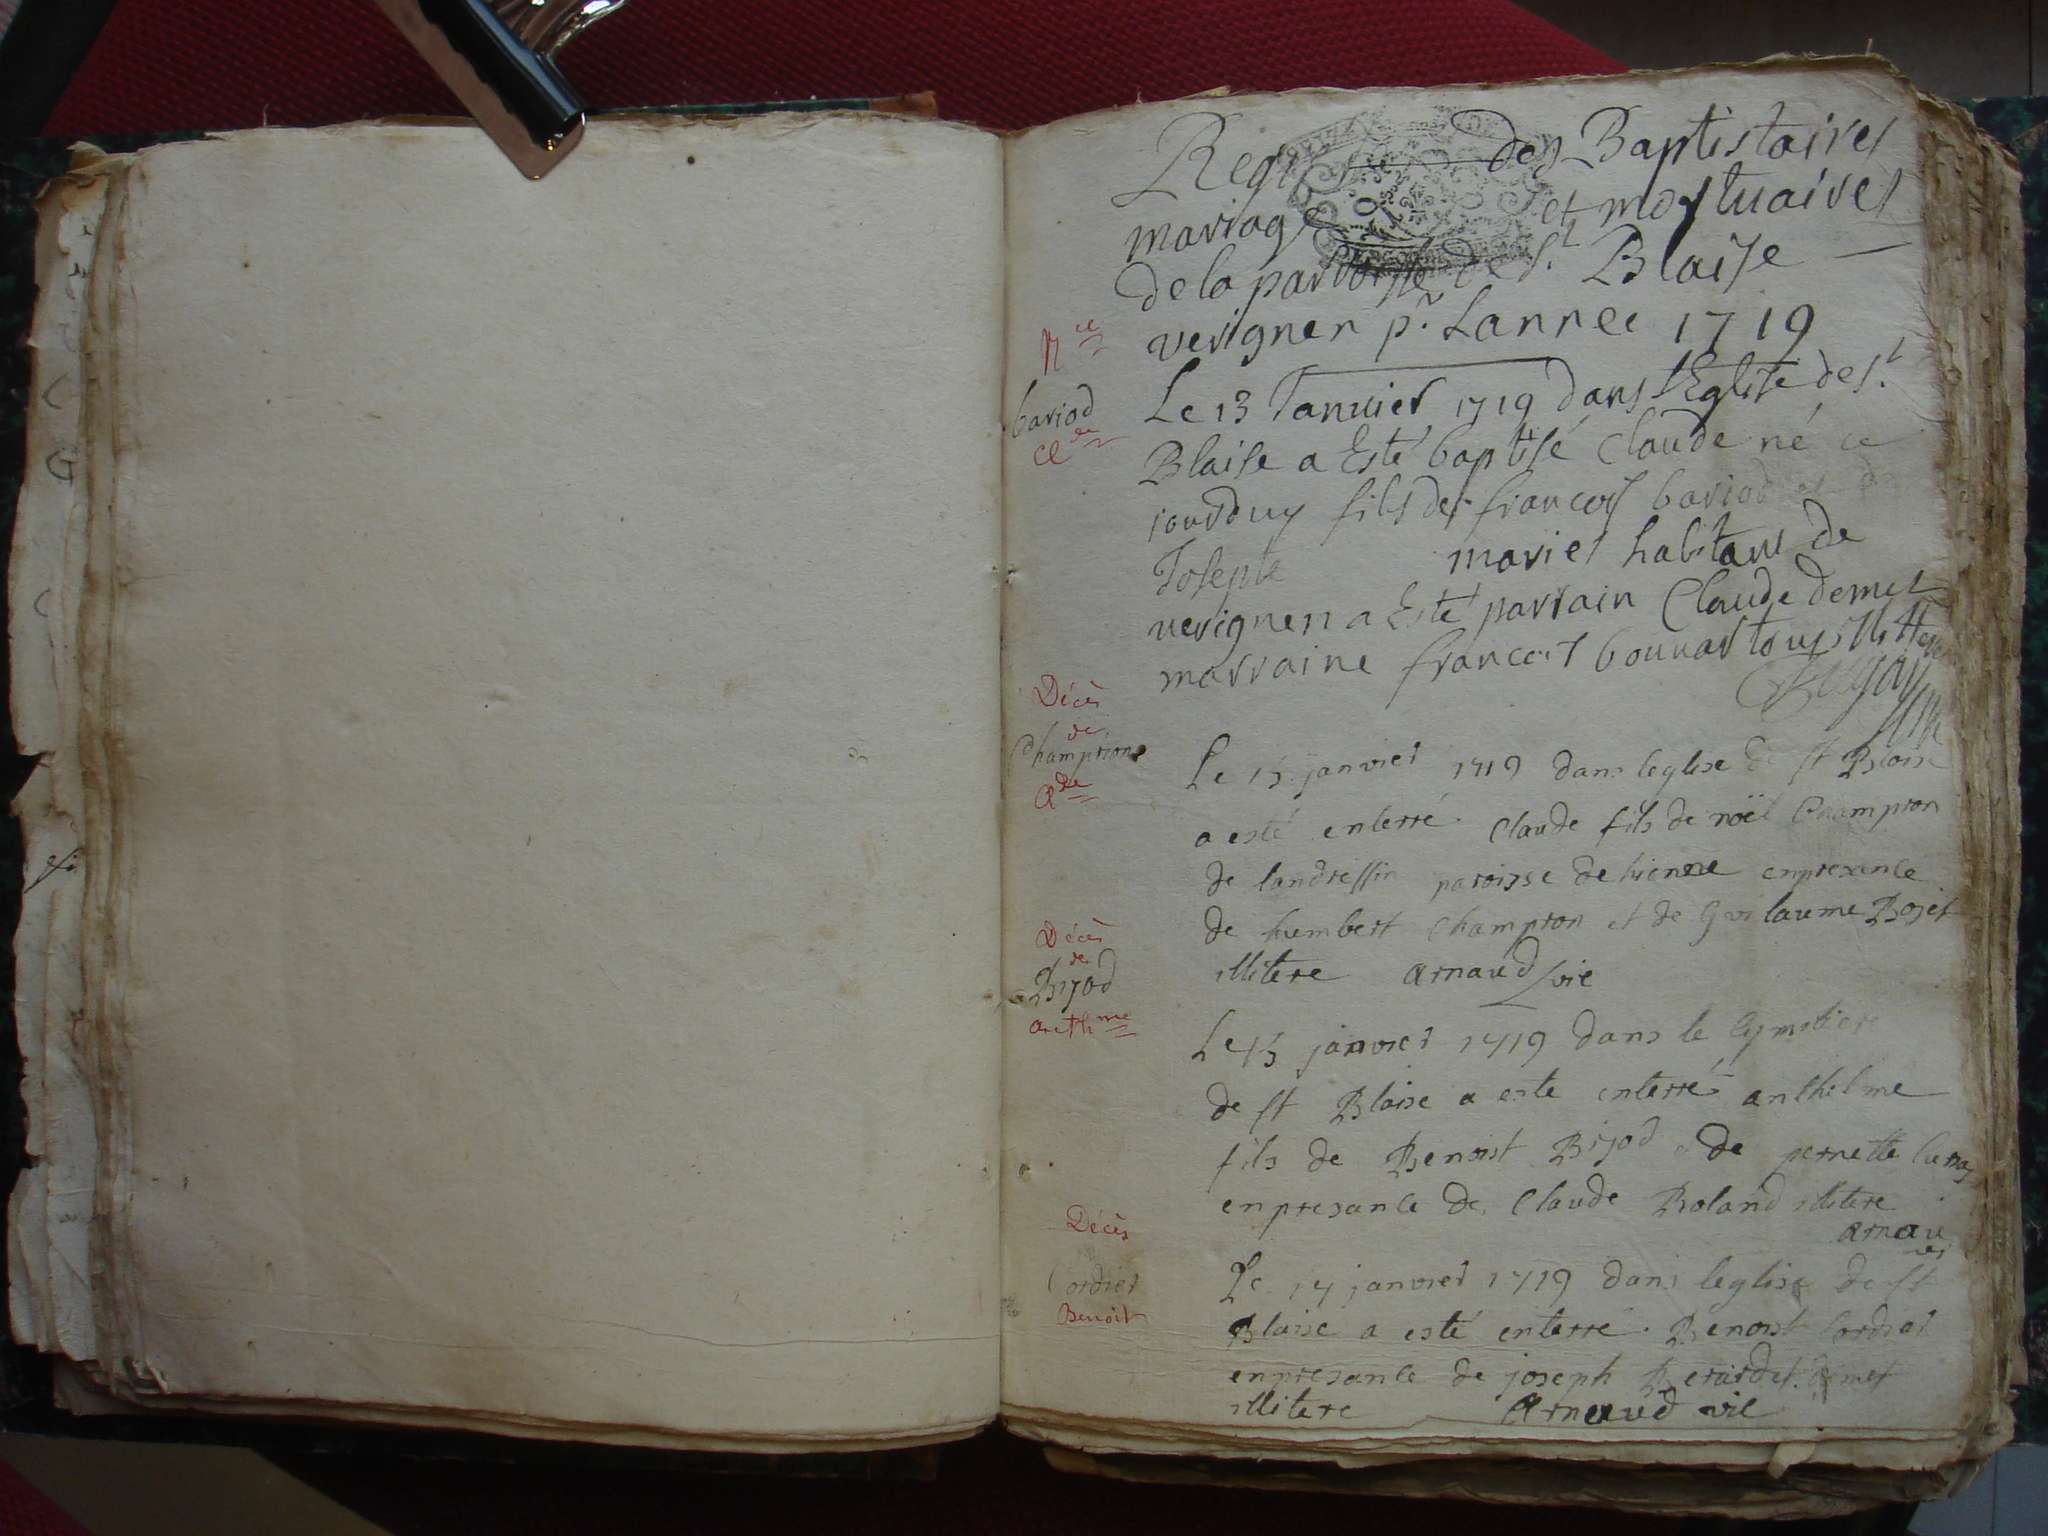 Regi des Baptistaires
mariage et mortuaires
de la parroisse de St. Blaise
verignen pr. Lannee 1719
Nce
bariod
Cl de
Le 13 Januier 1719 dans l'Eglise de St.
Blaise a Esté baptisé Claude né ce
jourduy fils de françois bariod et de
Josepte maries habitans de
verignen a Esté parrain Claude demet
marraine francois bouuar tous illittere
Décès
de
Champion
Cl de
Le 13 janvier 1719 dans leglise de st Blaise
a esté enterré Claude fils de noël Champion
de landressin paroisse de enpresance
de humbert Champion et de Guilaume Rojet
illitere arnaud vic
Décès
de
Bijod
anthme
Le 13 janvier 1719 dans le Cymetiere
de st Blaise a este enterré anthelme
fils de Benoist Bijod & de pernette
enpresance de Claude Roland illitere
arnau
vic
Décès
Cordier
Benoit
Le 14 janvier 1719 dans leglise de st
Blaise a esté enterré Benoist Cordier
enpresance de joseph demet
illitere Arnaud vic